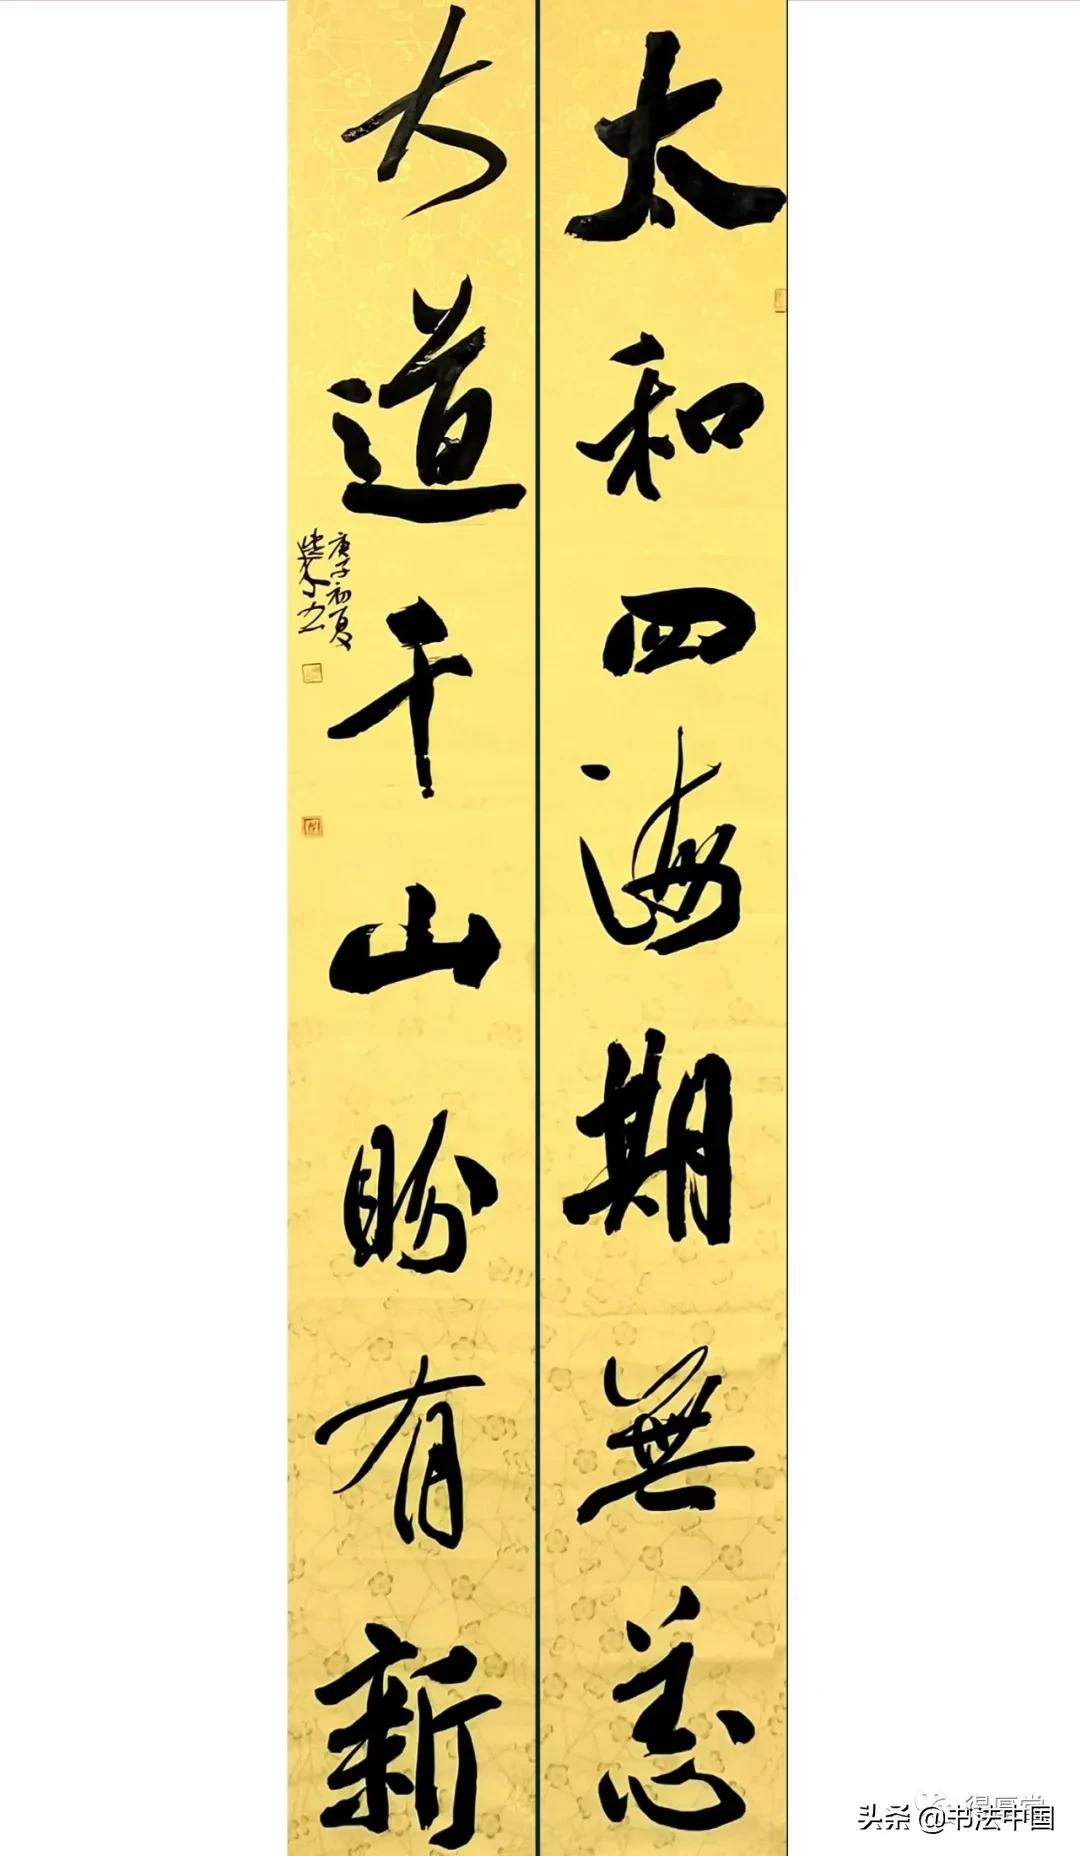 太和四海期無恙
大道千山盼有新
庚子初夏
头条 @书法中国